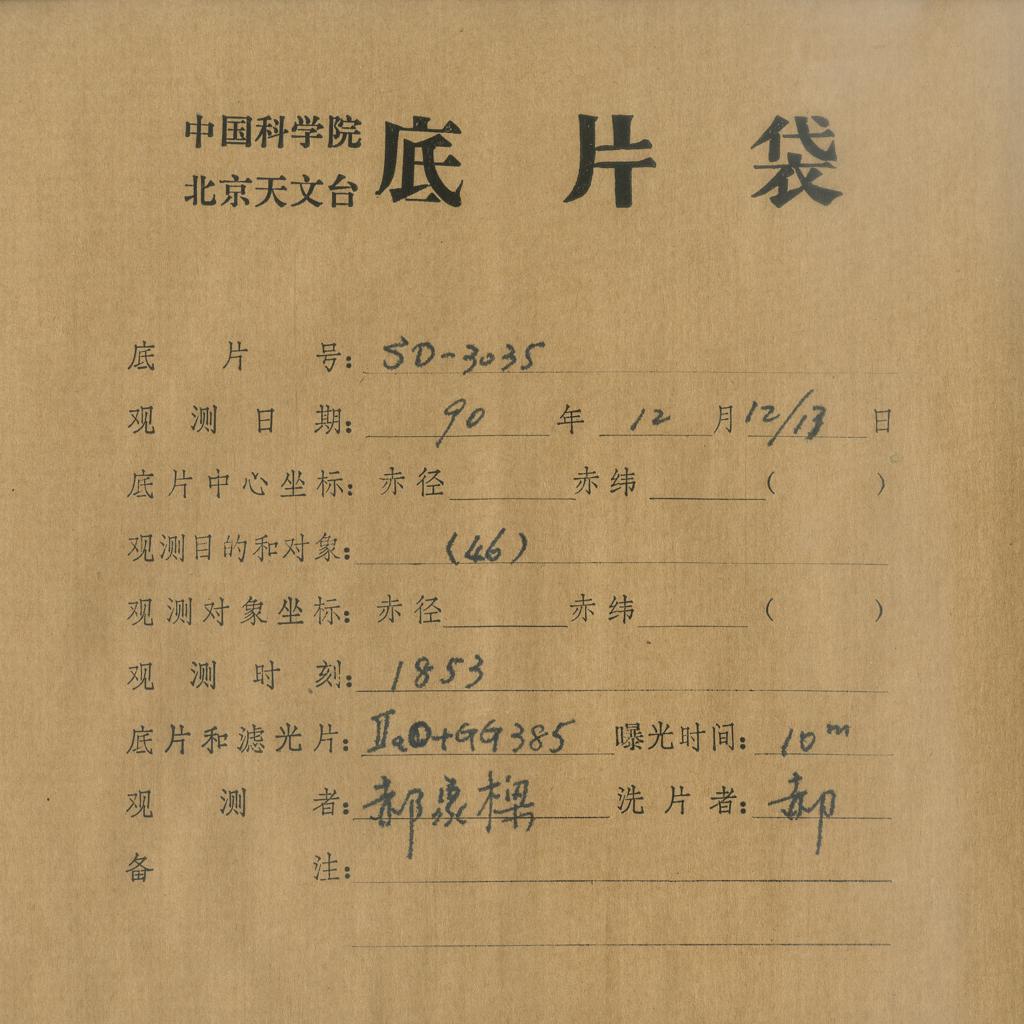 中国科学院
北京天文台 底片袋
底片号: SD-3035
观测日期: 90 年 12 月 12/13 日
底片中心坐标: 赤径 赤纬 ( )
观测目的和对象: (46)
观测对象坐标: 赤径 赤纬 ( )
观测时刻: 1853
底片和滤光片: IIaO+GG385 曝光时间: 10m
观测者: 郝象樑 洗片者: 郝
备注: